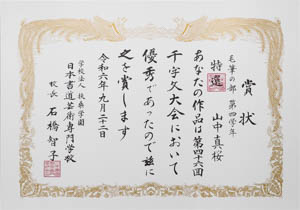 賞状
毛筆の部 第四学年
特選 山中真桜
あなたの作品は第四十六回
千字文大会において
優秀であったので茲に
之を賞します
令和六年九月二十二日
学校法人 扶桑学園
日本書道芸術専門学校
校長 石橋智子